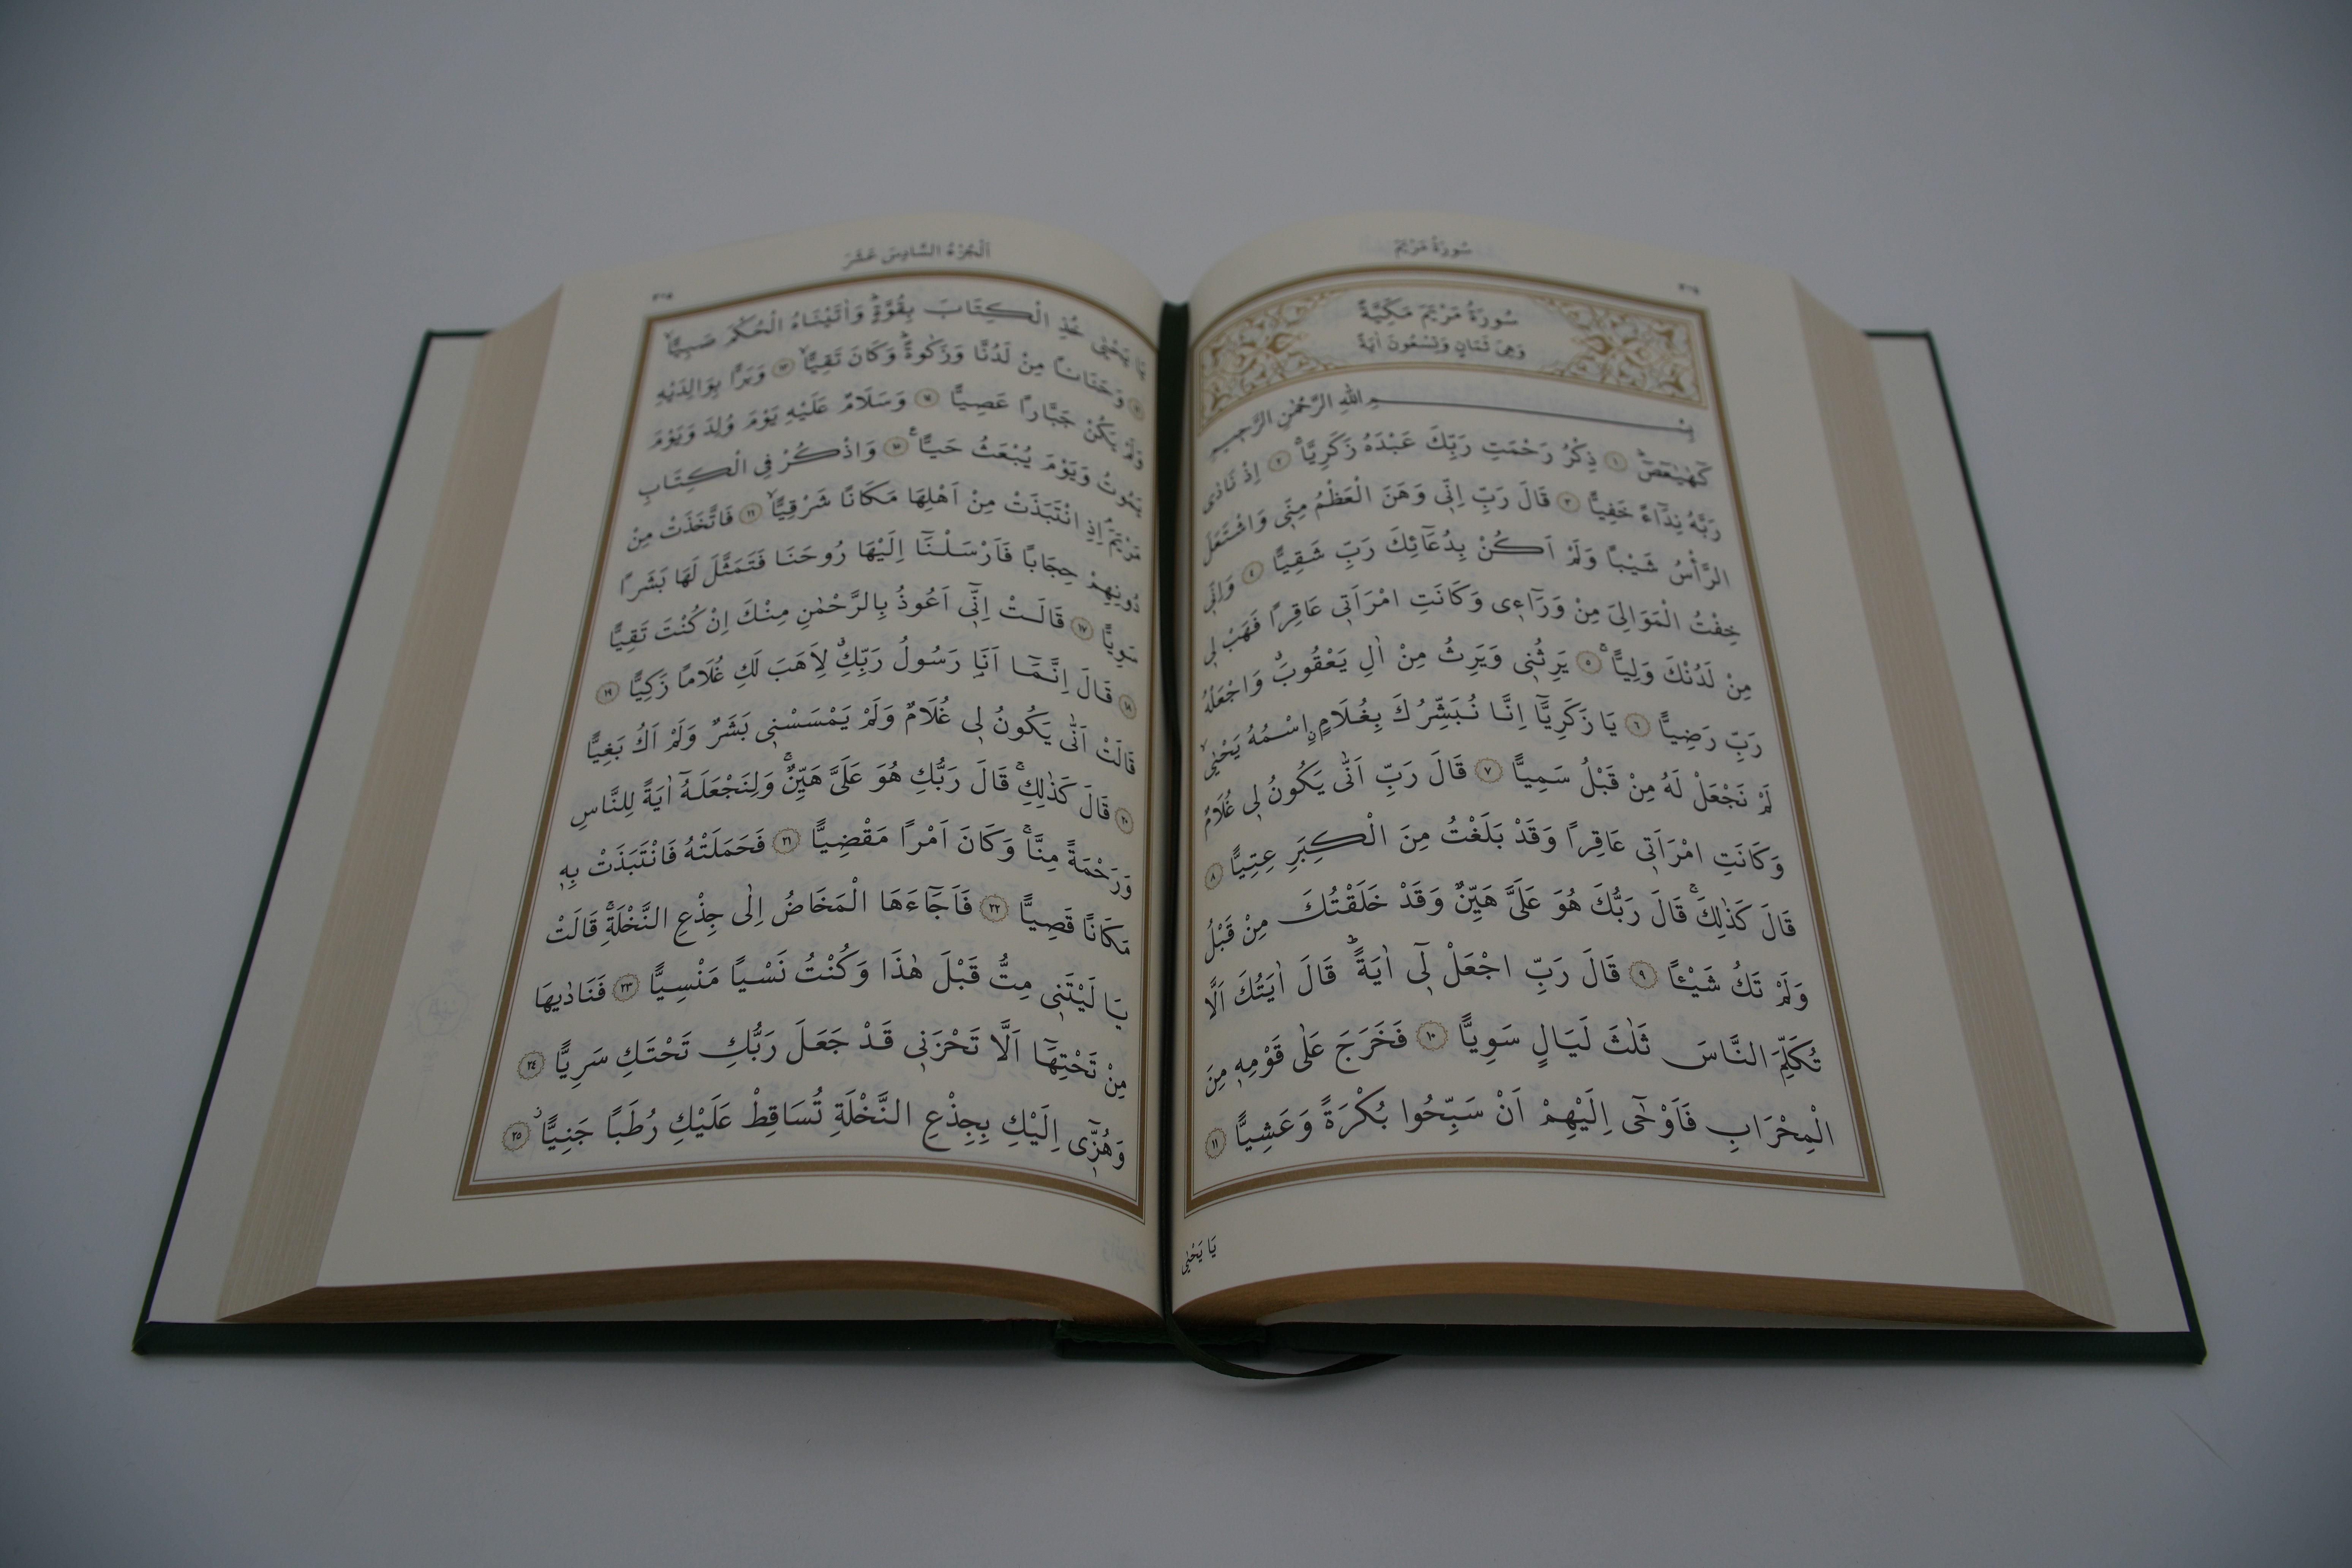 سُورَةُ مَرْيَمَ
سُورَةُ مَرْيَمَ مَكِّيَّةٌ
وَهِيَ ثَمَانٍ وَتِسْعُونَ اٰيَةً
بِسْمِ اللّٰهِ الرَّحْمٰنِ الرَّحِيمِ
كٓهٰيٰعٓصٓ ۚ ١ ذِكْرُ رَحْمَتِ رَبِّكَ عَبْدَهُ زَكَرِيَّاۚ ٢ اِذْ نَادٰى
رَبَّهُ نِدَٓاءً خَفِيًّا ٣ قَالَ رَبِّ اِنّ۪ي وَهَنَ الْعَظْمُ مِنّ۪ي وَاشْتَعَلَ
الرَّأْسُ شَيْبًا وَلَمْ اَكُنْ بِدُعَٓائِكَ رَبِّ شَقِيًّا ٤ وَاِنّ۪ي
خِفْتُ الْمَوَالِيَ مِنْ وَرَٓاء۪ي وَكَانَتِ امْرَاَت۪ي عَاقِرًا فَهَبْ ل۪ي
مِنْ لَدُنْكَ وَلِيًّاۙ ٥ يَرِثُن۪ي وَيَرِثُ مِنْ اٰلِ يَعْقُوبَۗ وَاجْعَلْهُ
رَبِّ رَضِيًّا ٦ يَا زَكَرِيَّٓا اِنَّا نُبَشِّرُكَ بِغُلَامٍۨ اسْمُهُ يَحْيٰىۙ
لَمْ نَجْعَلْ لَهُ مِنْ قَبْلُ سَمِيًّا ٧ قَالَ رَبِّ اَنّٰى يَكُونُ ل۪ي غُلَامٌ
وَكَانَتِ امْرَاَت۪ي عَاقِرًا وَقَدْ بَلَغْتُ مِنَ الْكِبَرِ عِتِيًّا ٨
قَالَ كَذٰلِكَۚ قَالَ رَبُّكَ هُوَ عَلَيَّ هَيِّنٌ وَقَدْ خَلَقْتُكَ مِنْ قَبْلُ
وَلَمْ تَكُ شَيْـًٔا ٩ قَالَ رَبِّ اجْعَلْ ل۪ٓي اٰيَةًۜ قَالَ اٰيَتُكَ اَلَّا
تُكَلِّمَ النَّاسَ ثَلٰثَ لَيَالٍ سَوِيًّا ١٠ فَخَرَجَ عَلٰى قَوْمِه۪ مِنَ
الْمِحْرَابِ فَاَوْحٰٓى اِلَيْهِمْ اَنْ سَبِّحُوا بُكْرَةً وَعَشِيًّا ١١
يَا يَحْيٰى
اَلْجُزْءُ السَّادِسَ عَشَرَ
يَا يَحْيٰى خُذِ الْكِتَابَ بِقُوَّةٍۜ وَاٰتَيْنَاهُ الْحُكْمَ صَبِيًّاۙ
١٢ وَحَنَانًا مِنْ لَدُنَّا وَزَكٰوةًۜ وَكَانَ تَقِيًّاۙ ١٣ وَبَرًّا بِوَالِدَيْهِ
وَلَمْ يَكُنْ جَبَّارًا عَصِيًّا ١٤ وَسَلَامٌ عَلَيْهِ يَوْمَ وُلِدَ وَيَوْمَ
يَمُوتُ وَيَوْمَ يُبْعَثُ حَيًّا۟ ١٥ وَاذْكُرْ فِي الْكِتَابِ
مَرْيَمَۢ اِذِ انْتَبَذَتْ مِنْ اَهْلِهَا مَكَانًا شَرْقِيًّاۙ ١٦ فَاتَّخَذَتْ مِنْ
دُونِهِمْ حِجَابًا فَاَرْسَلْنَٓا اِلَيْهَا رُوحَنَا فَتَمَثَّلَ لَهَا بَشَرًا
سَوِيًّا ١٧ قَالَتْ اِنّ۪ٓي اَعُوذُ بِالرَّحْمٰنِ مِنْكَ اِنْ كُنْتَ تَقِيًّا
١٨ قَالَ اِنَّمَٓا اَنَا۬ رَسُولُ رَبِّكِۗ لِاَهَبَ لَكِ غُلَامًا زَكِيًّا ١٩
قَالَتْ اَنّٰى يَكُونُ ل۪ي غُلَامٌ وَلَمْ يَمْسَسْن۪ي بَشَرٌ وَلَمْ اَكُ بَغِيًّا
٢٠ قَالَ كَذٰلِكِۚ قَالَ رَبُّكِ هُوَ عَلَيَّ هَيِّنٌۚ وَلِنَجْعَلَهُٓ اٰيَةً لِلنَّاسِ
وَرَحْمَةً مِنَّاۚ وَكَانَ اَمْرًا مَقْضِيًّا ٢١ فَحَمَلَتْهُ فَانْتَبَذَتْ بِه۪
مَكَانًا قَصِيًّا ٢٢ فَاَجَٓاءَهَا الْمَخَاضُ اِلٰى جِذْعِ النَّخْلَةِۚ قَالَتْ
يَا لَيْتَن۪ي مِتُّ قَبْلَ هٰذَا وَكُنْتُ نَسْيًا مَنْسِيًّا ٢٣ فَنَادٰيهَا
مِنْ تَحْتِهَٓا اَلَّا تَحْزَن۪ي قَدْ جَعَلَ رَبُّكِ تَحْتَكِ سَرِيًّا ٢٤
وَهُزّ۪ٓي اِلَيْكِ بِجِذْعِ النَّخْلَةِ تُسَاقِطْ عَلَيْكِ رُطَبًا جَنِيًّاۘ ٢٥